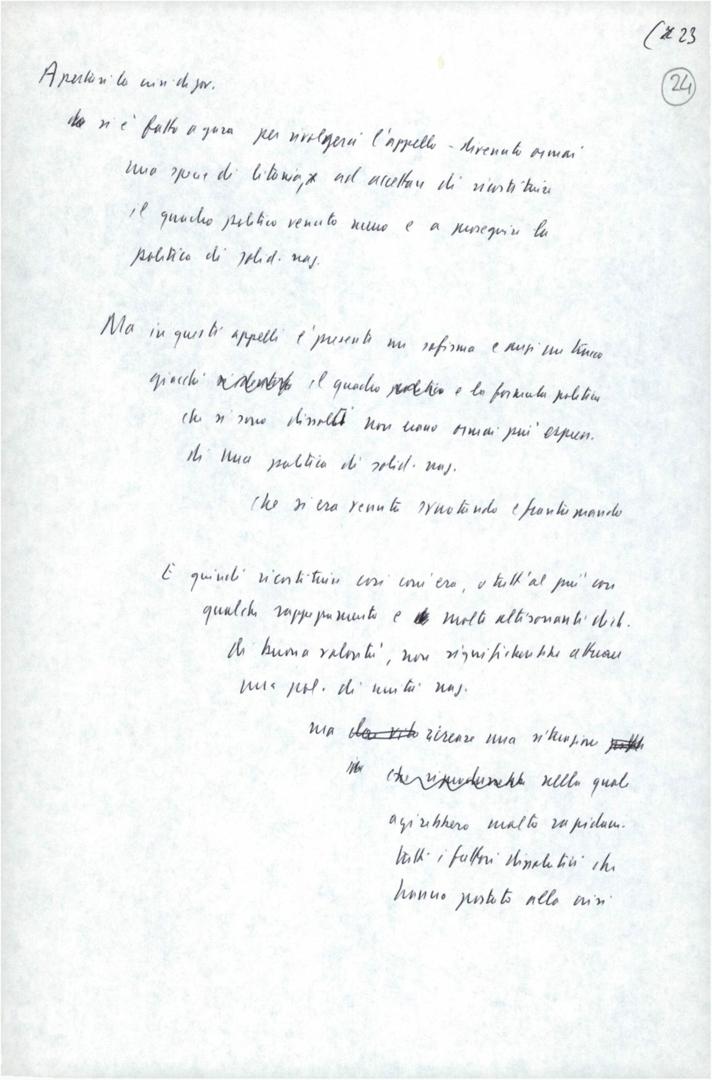 23
24
Apertasi la crisi di gov.
si è fatto a gara per rivolgerci l'appello - divenuto ormai
una specie di litania, ad accettare di ricostituire
il quadro politico venuto meno e a proseguire la
politica di solid. naz.
Ma in questi appelli è presente un sofisma e anzi un trucco
giacché il quadro politico e la formula politica
che si sono dissolti non erano ormai più espress.
di una politica di solid. naz.
che si era venuta svuotando e frantumando
E quindi ricostituire così com'era, o tutt'al più con
qualche e molte altisonanti dich.
di buona volontà, non significherebbe attuare
una pol. di unità naz.
ma ricreare una situazione
nella quale
agirebbero molto rapidam.
tutti i fattori dissolutivi che
hanno portato alla crisi